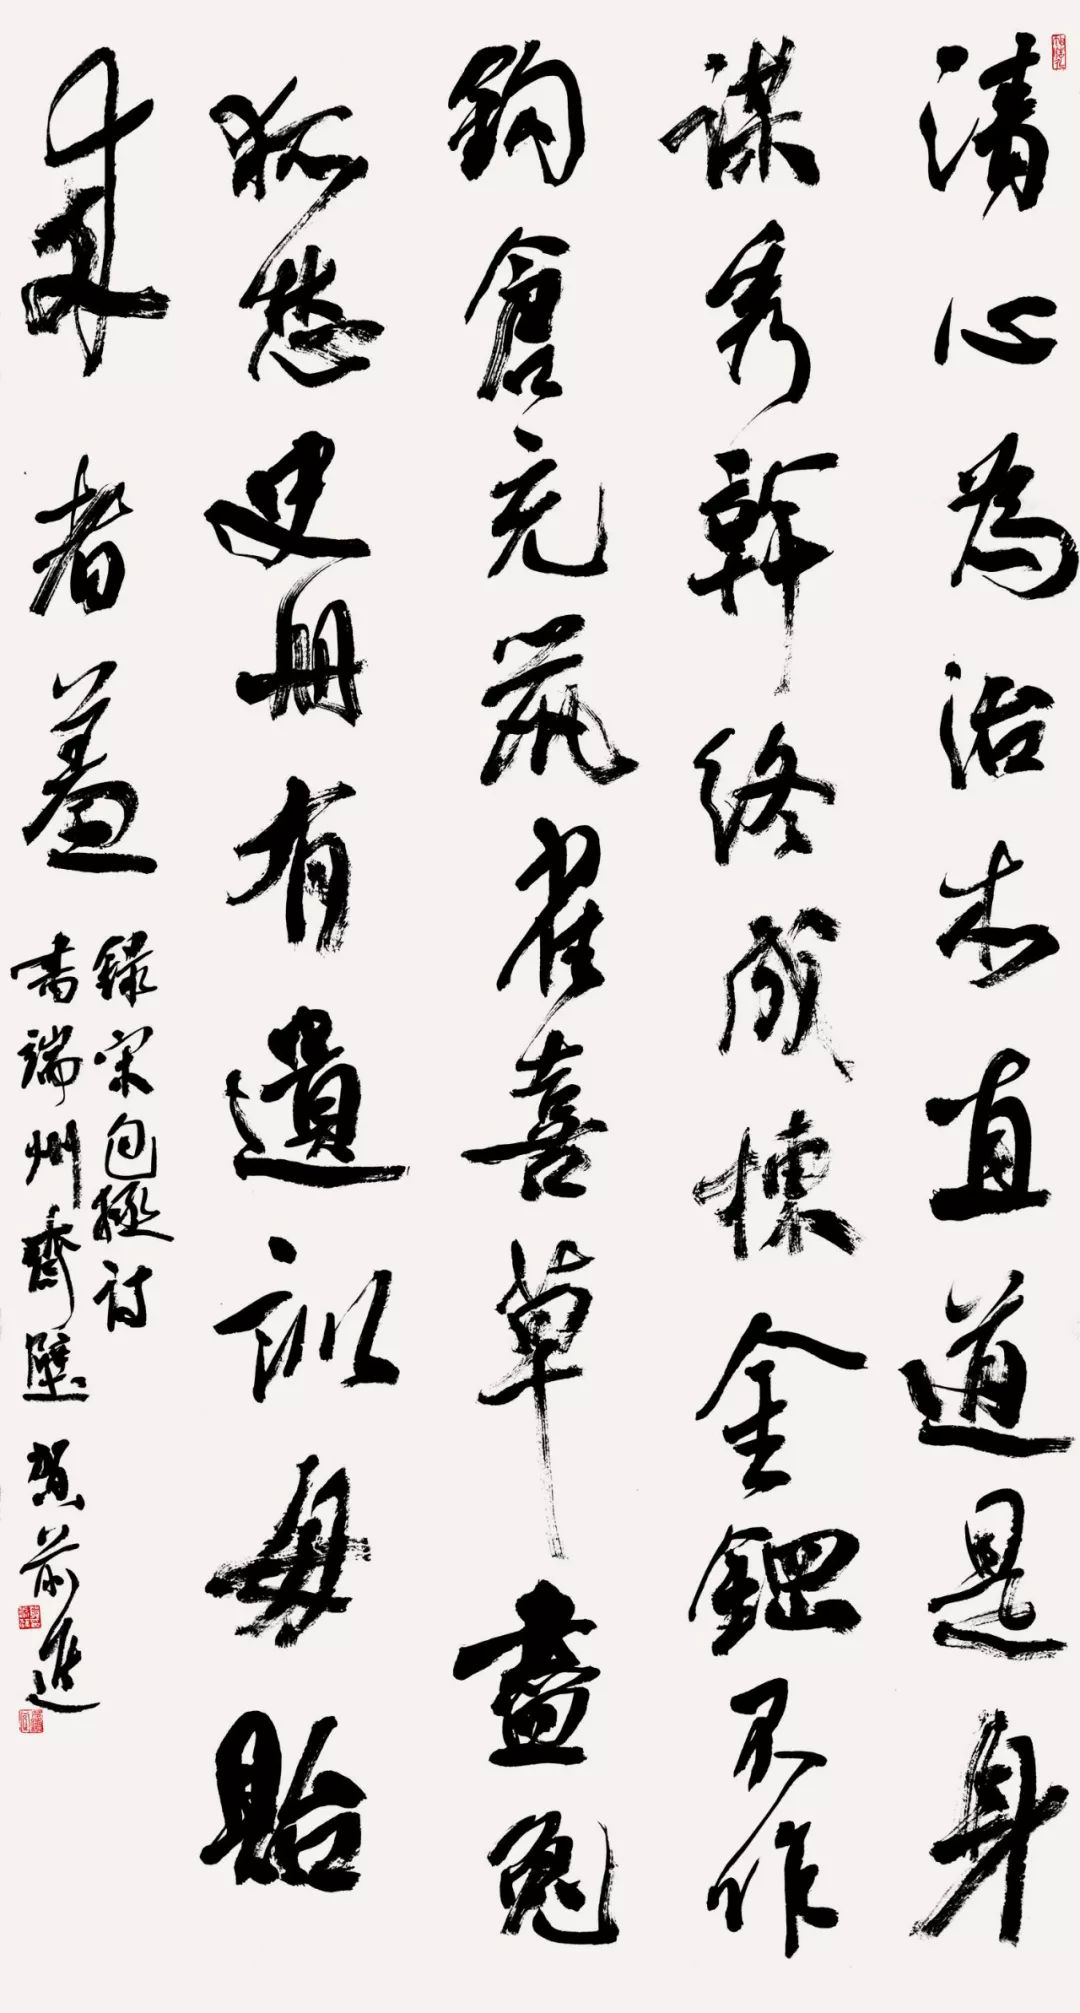 清心為治本直道是身
謀秀幹終成棟金鋼不作
鉤倉充鼠雀喜草盡兔
狐愁史冊有遺訓毋貽
來者羞
錄宋包拯詩
書端州齋壁 賀前進